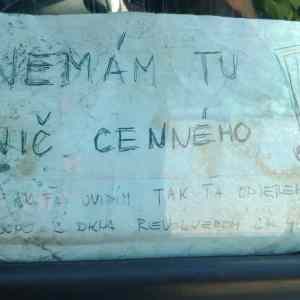 NEMÁM TU
NIČ CENNÉHO
AK ŤA UVIDÍM TAK ŤA
Z OKNA REVOLVEROM